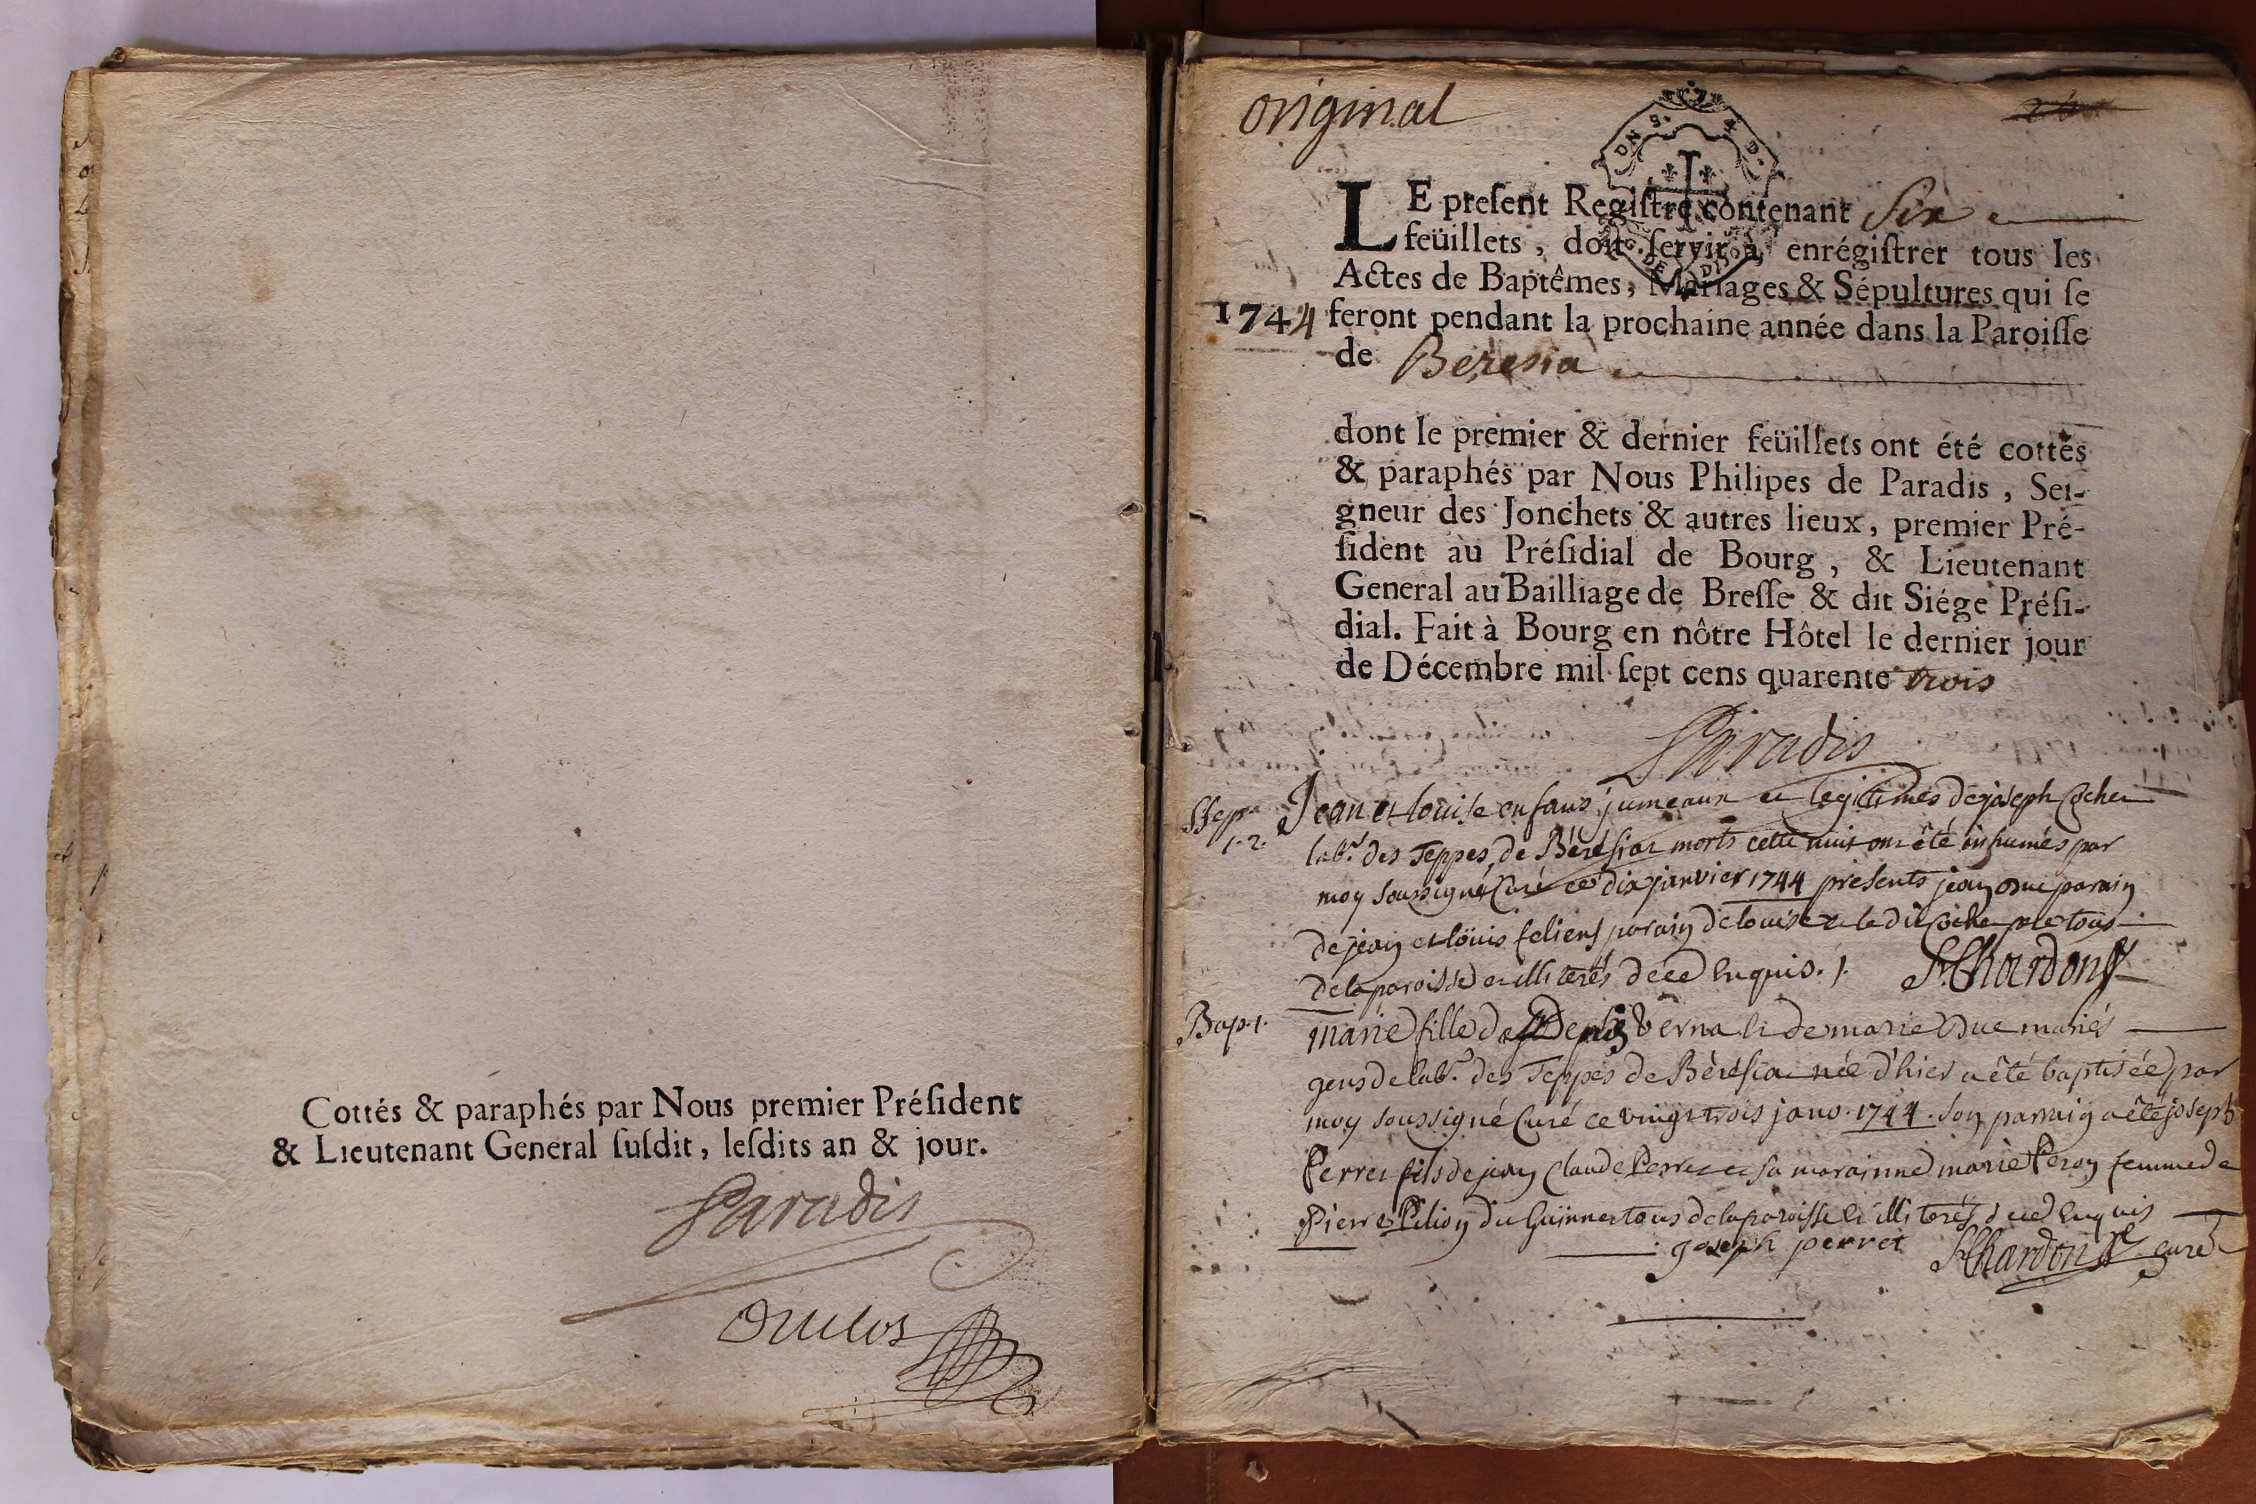 Cottés & paraphés par Nous premier Préſident
& Lieutenant General ſuſdit, leſdits an & jour.
Paradis
Duclos
original
LE preſent Regiſtre contenant Six
feüillets, doit ſervir à enrégiſtrer tous les
Actes de Baptêmes, Mariages & Sépultures qui ſe
1744 feront pendant la prochaine année dans la Paroiſſe
de Beresia
dont le premier & dernier feüillets ont été cottés
& paraphés par Nous Philipes de Paradis, Sei-
gneur des Jonchets & autres lieux, premier Pré-
ſident au Préſidial de Bourg, & Lieutenant
General au Bailliage de Breſſe & dit Siége Préſi-
dial. Fait à Bourg en nôtre Hôtel le dernier jour
de Décembre mil ſept cens quarente trois
Paradis
Sep.
1.2.
Jean et louise enfans jumeaux et legitimes de joseph Cocher
labr. des Teppes de Béréſiat morts cette nuit ont été inhumés par
moy soussigné Curé ce dix janvier 1744 présents jean parain
de jean et loüis feliens parain de louise et le dit tous
de la paroisse et illiterés de ce Enquis. /.
Bap. 1.
marie fille de Denis Verna et de marie mariés
gens de labr. des Teppes de Béréſia née d'hier a été baptisée par
moy soussigné Curé ce vingt trois janv. 1744. son parrain a été joseph
Perret fils de jean Claude Perret et sa marainne marie Peron femme de
Pierre Pilion du tous de la paroisse et illiterés de ce Enquis
joseph perret Chardon curé